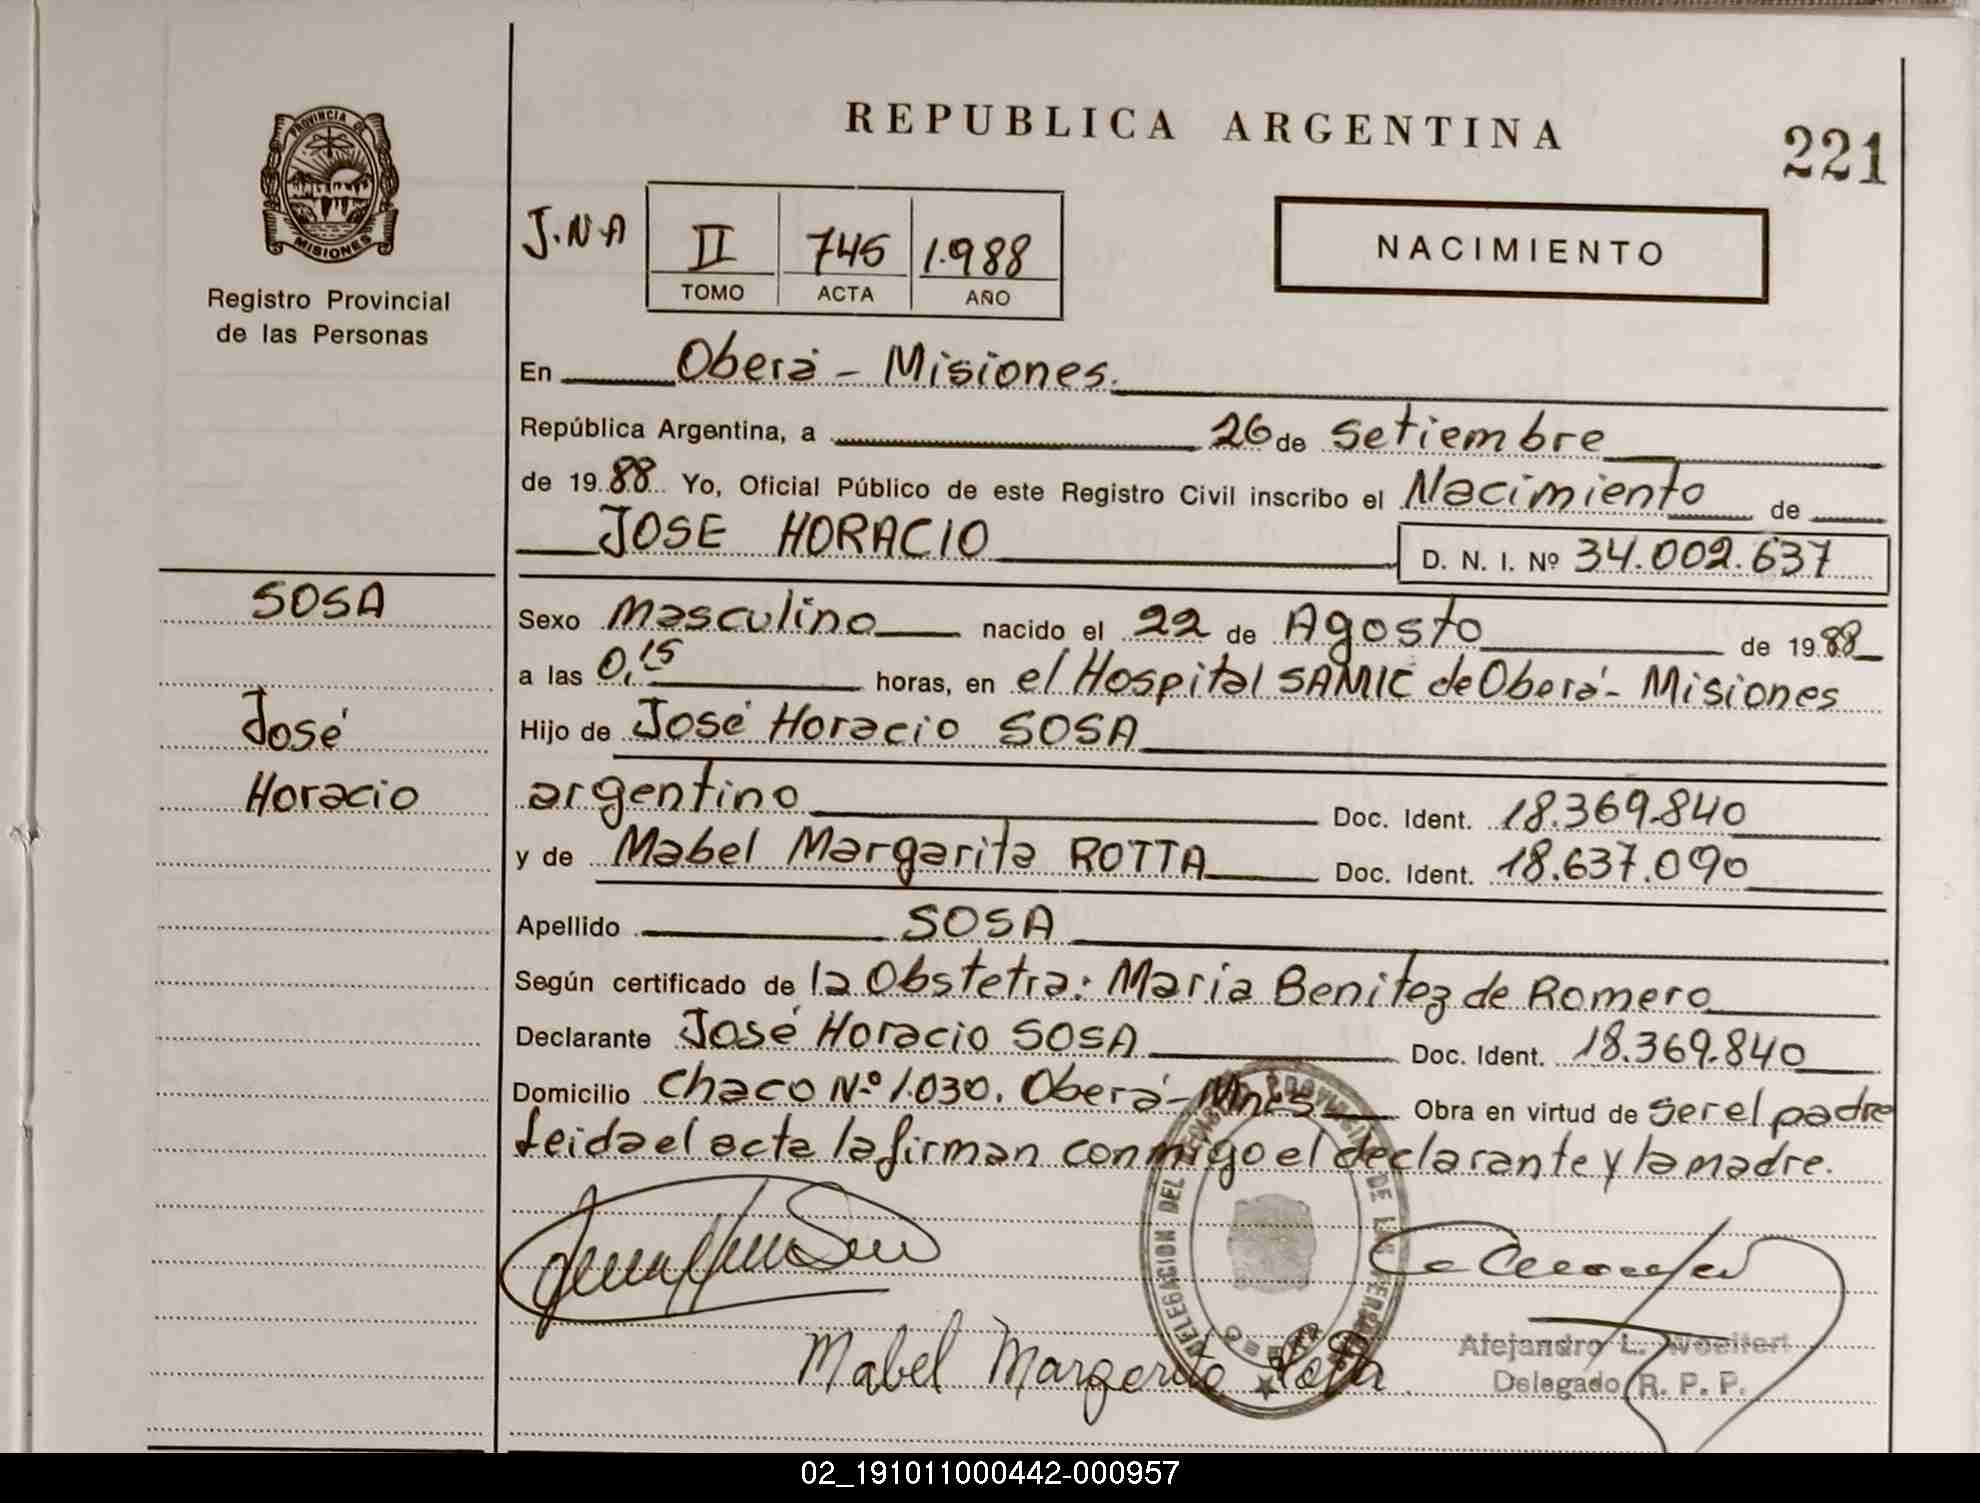 REPUBLICA ARGENTINA
221
PROVINCIA DE
MISIONES
Registro Provincial
de las Personas
J.N.A
II 745 1.988
TOMO ACTA AÑO
NACIMIENTO
En Oberá - Misiones.
República Argentina, a 26 de Setiembre
de 19 88 Yo, Oficial Público de este Registro Civil inscribo el Nacimiento de
JOSE HORACIO
D. N. I. Nº 34.002.637
SOSA
José
Horacio
Sexo Masculino nacido el 22 de Agosto de 19 88
a las 0,15 horas, en el Hospital SAMIC de Oberá - Misiones
Hijo de José Horacio SOSA
argentino Doc. Ident. 18.369.840
y de Mabel Margarita ROTTA Doc. Ident. 18.637.090
Apellido SOSA
Según certificado de la Obstetra: María Benitez de Romero
Declarante José Horacio SOSA Doc. Ident. 18.369.840
Domicilio Chaco Nº 1.030. Oberá - Mnes Obra en virtud de ser el padre
Leida el acta la firman conmigo el declarante y la madre.
DELEGACION DEL REGISTRO PROVINCIAL DE LAS PERSONAS
Mabel Margarita Rotta
Delegado R. P. P.
02_191011000442-000957